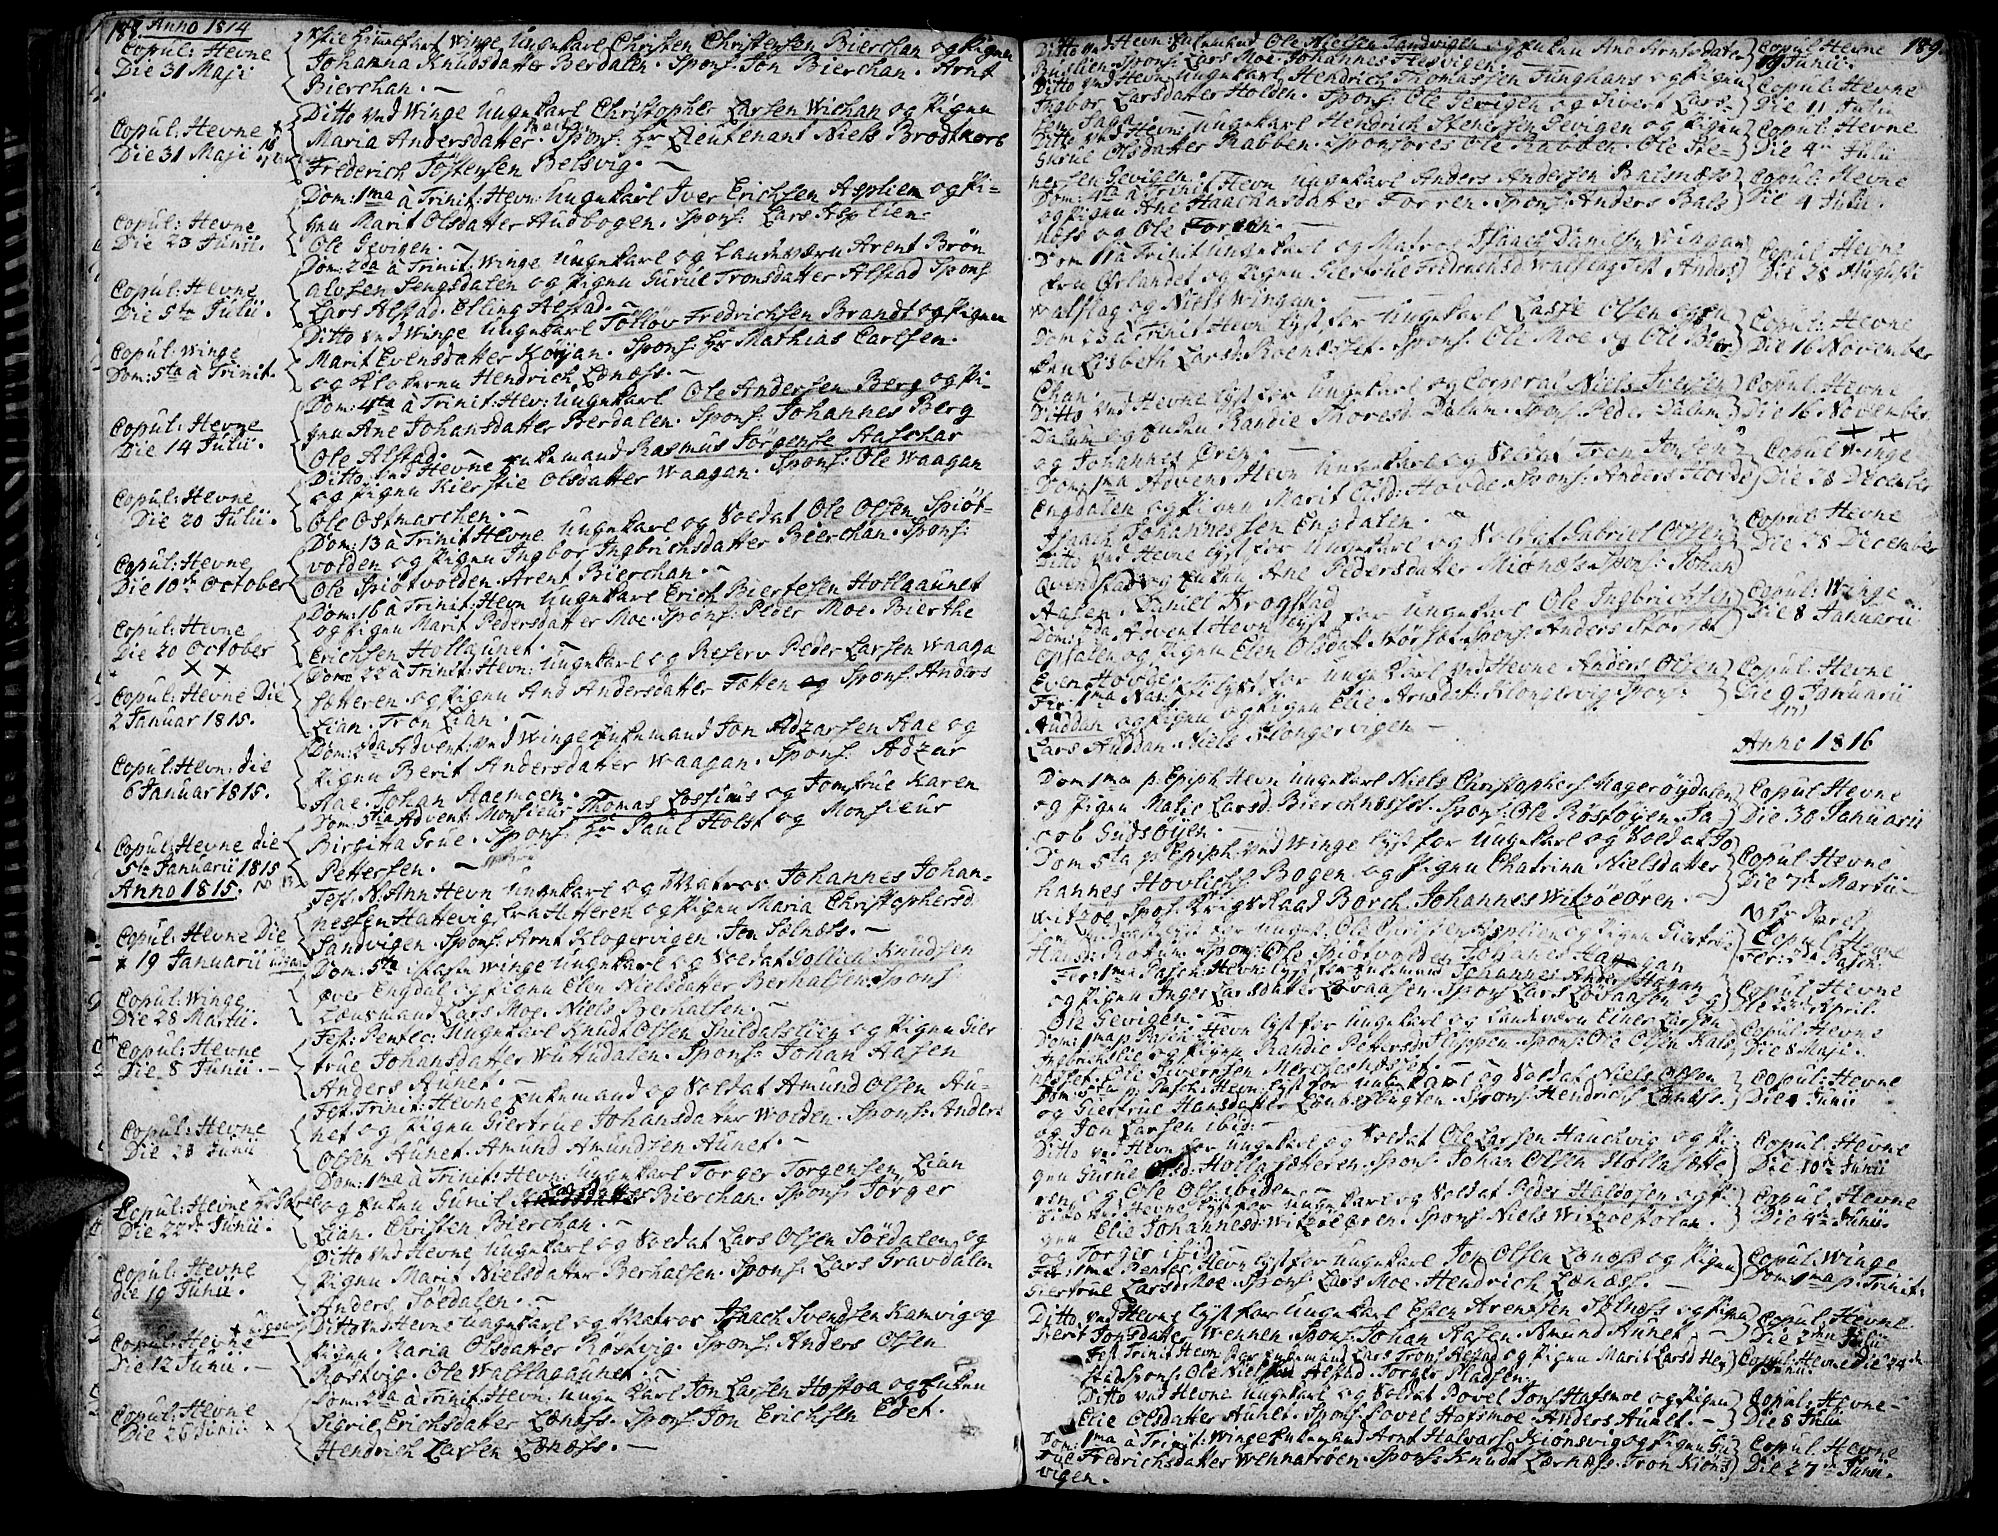 188. Anno 1814
Copul: Hevne
Die 31 Maji
Christi Himmelfart Winge Ungekarl Christen Christensen Bierchan og Pigen
Johanna Knudsdatter Berdalen. Spons: Jon Bierchan. Arnt
Bierchan. —
Copul: Hevne
Die 31 Maji
Ditto ved Winge Ungekarl Christopher Larsen Wichan og Pigen
Maria Andersdatter. Spons: Hr Lieutenant Niels Brodtkorb
Frederich Tostensen Belsvig. —
Copul: Hevne
Die 23 Junii.
Dom: 1ma à Trinit: Hevn: Ungekarl Iver Erichsen Asplien og Pi-
gen Marit Olsdatter Audbogen. Spons: Lars Asplien.
Ole Gevigen. —
Copul: Hevne
Die 5te Julii.
Dom: 2da à Trinit: Winge Ungekarl og Landeværn Arent Brøn
alvsen Sengsdalen og Pigen Gurue Tronsdatter Alstad Spons:
Lars Alstad. Elling Alstad. —
Copul: Winge
Dom: 5ta à Trinit.
Ditto ved Winge Ungekarl Tølløv Fredrichsen Brandt og Pigen
Marit Evensdatter Kørjan. Spons: Hr Mathias Carlsen.
og Klokeren Hendrich Lønæss. —
Copul: Hevne
Die 14 Julii.
Dom: 4ta à Trinit: Hev: Ungekarl Ole Andersen Berg og Pi-
gen Ane Johansdatter Sverdalen. Spons: Johannes Berg
Ole Alstad. —
Copul: Hevne
Die 20 Julii.
Ditto ved Hevne Enkemand Rasmus Jørgense Aaschar
og Pigen Kierstie Olsdatter Waagan. Spons: Ole Waagan
Ole Ostmarchen. —
Copul: Hevne
Die 10de October
Dom: 13 à Trinit Hevne Ungekarl og Soldat Ole Olsen Spiøt-
volden og Pigen Ingbor Ingbrichsdatter Bierchan. Spons:
Ole Spiøtvolden. Arent Bierchan. —
Copul: Hevne
Die 20 October
Dom: 16 à Trinit: Hevn Ungekarl Erich Biertesen Hollgaunet
og Pigen Marit Pedersdatter Moe. Spons: Peder Moe. Bierthe
Erichsen Hollgaunet. —
Copul: Hevne Die
2 Januar 1815.
Dom: 22 à Trinit: Hevn: Ungekarl og Reserv Peder Larsen Waaga
setteren og Pigen And Andersdatter Totten Spons: Anders
Lian. Tron Lian. —
Copul: Hevn: die
6 Januar 1815.
Dom: 2da Advent: ved Winge Enkemand Jon Adzarsen Aae og
Pigen Berit Andersdatter Waagan. Spons: Adzar
Aae. Johan Aaemoen.
Copul: Hevne die
5te Januarii 1815
Dom: 3tia Advent: Monsieur Thomas Lossius og Jomfrue Karen
Birgita Grue. Spons: Hr Paul Holst og Monsieur
Pettersen. —
Anno 1815.
Copul: Hevne Die
19 Januarii
Fest: N: Ann Hevn Ungekarl og Matros Johannes Johan-
nessen Hattevig fra Hitteren og Pigen Maria Christophersd
Sandvigen. Spons: Arnt Klogervigen. Jon Solnæss. —
Copul: Winge
Die 28 Martii.
Dom: 5te i Faste Winge Ungekarl og Soldat Gollich Knudsen
Øver Engdal og Pigen Elen Nielsdatter Berhalsen. Spons
Lænsmand Lars Moe. Niels Berhalsen. —
Copul: Hevne
Die 8 Junii. —
Fest: Pentec: Ungekarl Knudt Olsen Snildalslien og Pigen Gier
true Johansdatter Wuttudalen. Spons: Johan Aasen
Anders Aunet. —
Copul: Hevne
Die 28 Junii
Fest: Trinit: Hevne Enkemand og Soldat Amund Olsen Au-
net og Pigen Giertrue Johansdatter Wolden. Spons: Anders
Olsen Aunet. Amund Amundsen Aunet. —
Copul: Hevne
Die 22de Junii.
Dom: 1ma à Trinit: Hevn: Ungekarl Torger Torgersen Lian
og Enken Gunil Bierchan. Spons: Jørger
Lian. Christen Bierchan. —
Copul: Hevne
Die 19 Junii.
Ditto ved Hevne Ungekarl og Soldat Lars Olsen Søedalen og
Pigen Marit Nielsdatter Berhalsen. Spons: Lars Gravdalen
Anders Søedalen. —
Copul: Hevne
Die 12 Junii. —
Ditto ved Hevne Ungekarl og Matros Isaach Svendsen Kamvig og
Pigen Maria Olsdatter Røstvig. Spons: Anders Olsen
Røstvig. Ole Walslagaunet. —
Copul: Hevne
Die 26 Junii
Dom: 2da à Trinit: Hevn: Unge Karl Jon Larsen Hostoa og Enken
Sigrie Erichsdatter Lønæss. Spons: Jon Erichsen Edet.
Hendrich Larsen Lønæss. —
189.
Ditto ved Hevn: Enkemand Ole Nielsen Sandvigen og Enken And Arntsdatter
Spons: Lars Moe. Johannes Hesvigen.
Copul: Hevne
Junii.
Ditto ved Hevn Ungekarl Hendrich Thomassen Junghans og Pigen
Ingbor Larsdatter Holden. Spons: Ole Gevigen og Sivert Lars-
Copul: Hevne
Die 11 Julii
Ditto ved Hevn: Ungekarl Hendrich Stenersen Gevigen og Pigen
Gurue Olsdatter Rabben. Sponsores Ole Rabben. Ole Ste-
nersen Gevigen. —
Copul: Hevne
Die 4de Julii
Dom: 4ta à Trinit Hevn Ungekarl Anders Andersen Balsnæss
og Pigen Ane Haachnsdatter Forren. Spons: Anders Bals
næss og Ole Forren. —
Copul: Hevne
Die 4 Julii.
Dom 11 à Trinit Ungekarl og Matros Isaach Danielsen Wingan
fra Ørlandet og Pigen Giertrue Fredrichsd Walslag Test Anders
Walslag og Niels Wingan. —
Copul: Hevne
Die 28 Augusti
Dom 23 à Trinit Hevn lyst for Ungekarl Lasse Olsen
Lisbeth Larsd: Roenesset. Spons: Ole Moe og Ole Bier-
chan.
Copul: Hevne
Die 16 November
Ditto ved Hevne lyst for Ungekarl og Corporal Niels Iversen
Dalum og Enken Randie Thoresd: Dalum. Spons: Peder Dalum
og Johannes Øren. —
Copul: Hevne
Die 16 November
Dom: 1ma Advent Hevn Ungekarl og Soldat Tron Jonsen
Engdalen og Pigen Marit Olsd: Hovde. Spons: Anders Hovde
Isaach Johannessen Engdalen. —
Copul Winge
Die 28 December
Ditto ved Hevne lyst for Ungekarl og Soldat Gabriel Olsen
Qvenstad og Enken Ane Pedersdatter Miønæs. Spons: Johan
Aasen. Daniel Krogstad
Copul Hevne
Die 28 December
Dom: 2da Advent Hevn lyst for Ungekarl Ole Ingbrichtsen
Opdalen og Pigen Elen Olsdat Nørset. Spons: Anders
Even Hovde.
Copul: Winge
Die 8 Januarii
Fer: 1ma Nat: lyst for Ungekarl ved Hevne Anders Olsen
Auddan og Pigen Elie Arnsdat: Klongervig Spons:
Lars Auddan. Niels Klongervigen —
Copul: Hevne
Die 9 Januarii
Anno 1816
Dom 1ma p. Epiph Hevn Ungekarl Niels Christophers: Magerøydalen
og Pigen Malie Larsd: Bierchnæsset. Spons: Ole Røstøyen. Ja
cob Gudsøyen. —
Copul Hevne
Die 30 Januarii
Dom 5ta p: Epiph: ved Winge lyst for Ungekarl og Soldat Jo
hannes Hovlichs: Bogen og Pigen Chatrina Nielsdatter
Witzøe. Spons: Krigs Raad Borch. Johannes Witzøeøren. —
Copul Hevne
Die 7de Martii
lyst for Ungek: Ole Christen Asplien og Pigen Giertrue
Hansd: Spons: Ole Spiøtvolden Johannes
Copul: Hevne
Fer: 2da Pasch:
Fer: 1ma Pasch: Hevn: lyst for Enkemand Johannes Anders: Hagan
og Pigen Inger Larsdatter Løvaasen. Spons: Lars Løvaasen og
Ole Gevigen. —
Copul: Hevne
Die 23de April.
Dom: 1ma p Pasch: Hevn lyst for Ungekarl og Landeværn Einer Larsen
Ingbrichslie og Pigen Randie Petersd: Slippen. Spons: Ole Olsen Kals
næset. Ole Sivertsen Merchestedset. —
Copul: Hevne
Die 8 Maji.
Dom: 3tia p: Pasch: Hevn: lyst for Ungekarl og Soldat Niels Olsen
og Giertrue Hansdatter Lønbeslugten. Spons: Hendrich Lønæss.
og Jon Larsen ibid: —
Copul: Hevne
Die Junii
Ditto ved Hevn for Ungekarl og Soldat Ole Larsen Hauchvig og Pi-
gen Gurue Hollasætteren. Spons: Johan Olsen Hollasætte
ren og Ole Ols: ibidem —
Copul: Hevne
Die 10de Junii
Ditto ved Hevne lyst for Ungekarl og Soldat Peder Haldosen og Pi-
gen Elie Johannesd: Witzøeøren. Spons: Niels Witzøe
og Torger ibid:
Copul: Hevne
Die 4de Junii.
Fer: 1ma Pentec: Hevn lyst for Ungekarl Jon Olsen Lønæss og Pigen
Giertrue Larsd: Moe. Spons: Lars Moe. Hendrich Lønæss. —
Copul: Winge
Dom: 1ma p: Trinit:
Ditto ved Hevne lyst for Ungekarl Esten Arentsen Solnæss og Pigen
Berit Jonsdatter Wennen. Spons: Johan Aasen. Amund Aunet. —
Copul: Hevne
Die 2den Julii
Fest Trinit Hevn for Enkemand Lars Trons: Alstad og Pigen Marit Larsd Hey
stad Spons: Ole Nielsen Alstad. Torger Pladsen.
Copul: Hevne die 24de
Junii.
Ditto ved Hevne Ungekarl og Soldat Povel Jons: Hafsmoe og Pigen
Elie Olsdatter Aunet. Spons: Povel Hafsmoe. Anders Aunet. —
Copul: Hevne
Die 8 Julii
Dom: 1ma à Trinit: Winge Enkemand Arnt Halvars: Kiønsvig og Pigen Gu
rue Fredrichsdatter Wennatrøen. Spons: Knudt Lernæss. Tron Kiøns
vigen.
Copul: Hevne
Die 27de Junii.